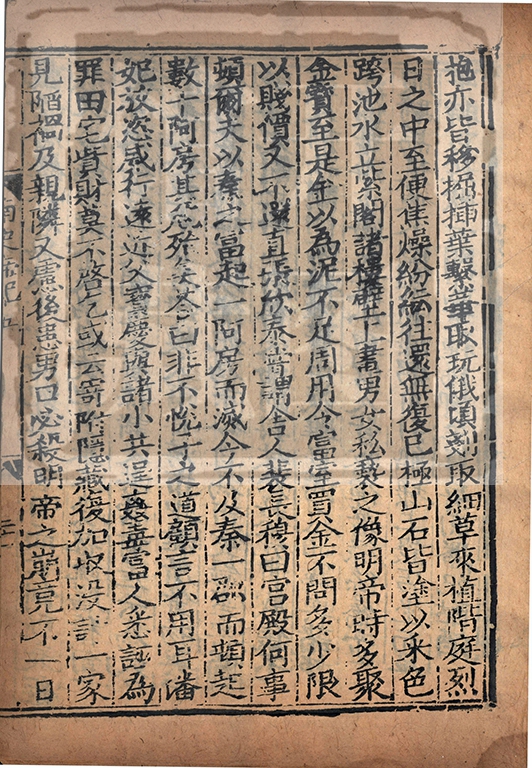 抱亦皆移掘插葉繫華取玩俄頃剗取細草來植階庭烈
日之中至便焦燥紛紜往還無復已極山石皆塗以采色
跨池水立紫閣諸樓壁上畫男女私褻之像明帝時多聚
金寶至是金以為泥不足周用令富室買金不問多少限
以賤價又不還直張欣泰嘗謂舍人裴長穆曰宮殿何事
頓爾夫以秦之富起一阿房而滅今不及秦一郡而頓起
數十阿房其危殆矣荅曰非不悅子之道顧言不用耳潘
妃放恣威行遠近父寶慶與諸小共逞姦毒富人悉誣為
罪田宅貲財莫不啓乞或云寄附隱藏復加收沒計一家
見陷禍及親隣又慮後患男口必殺明帝之崩竟不一日